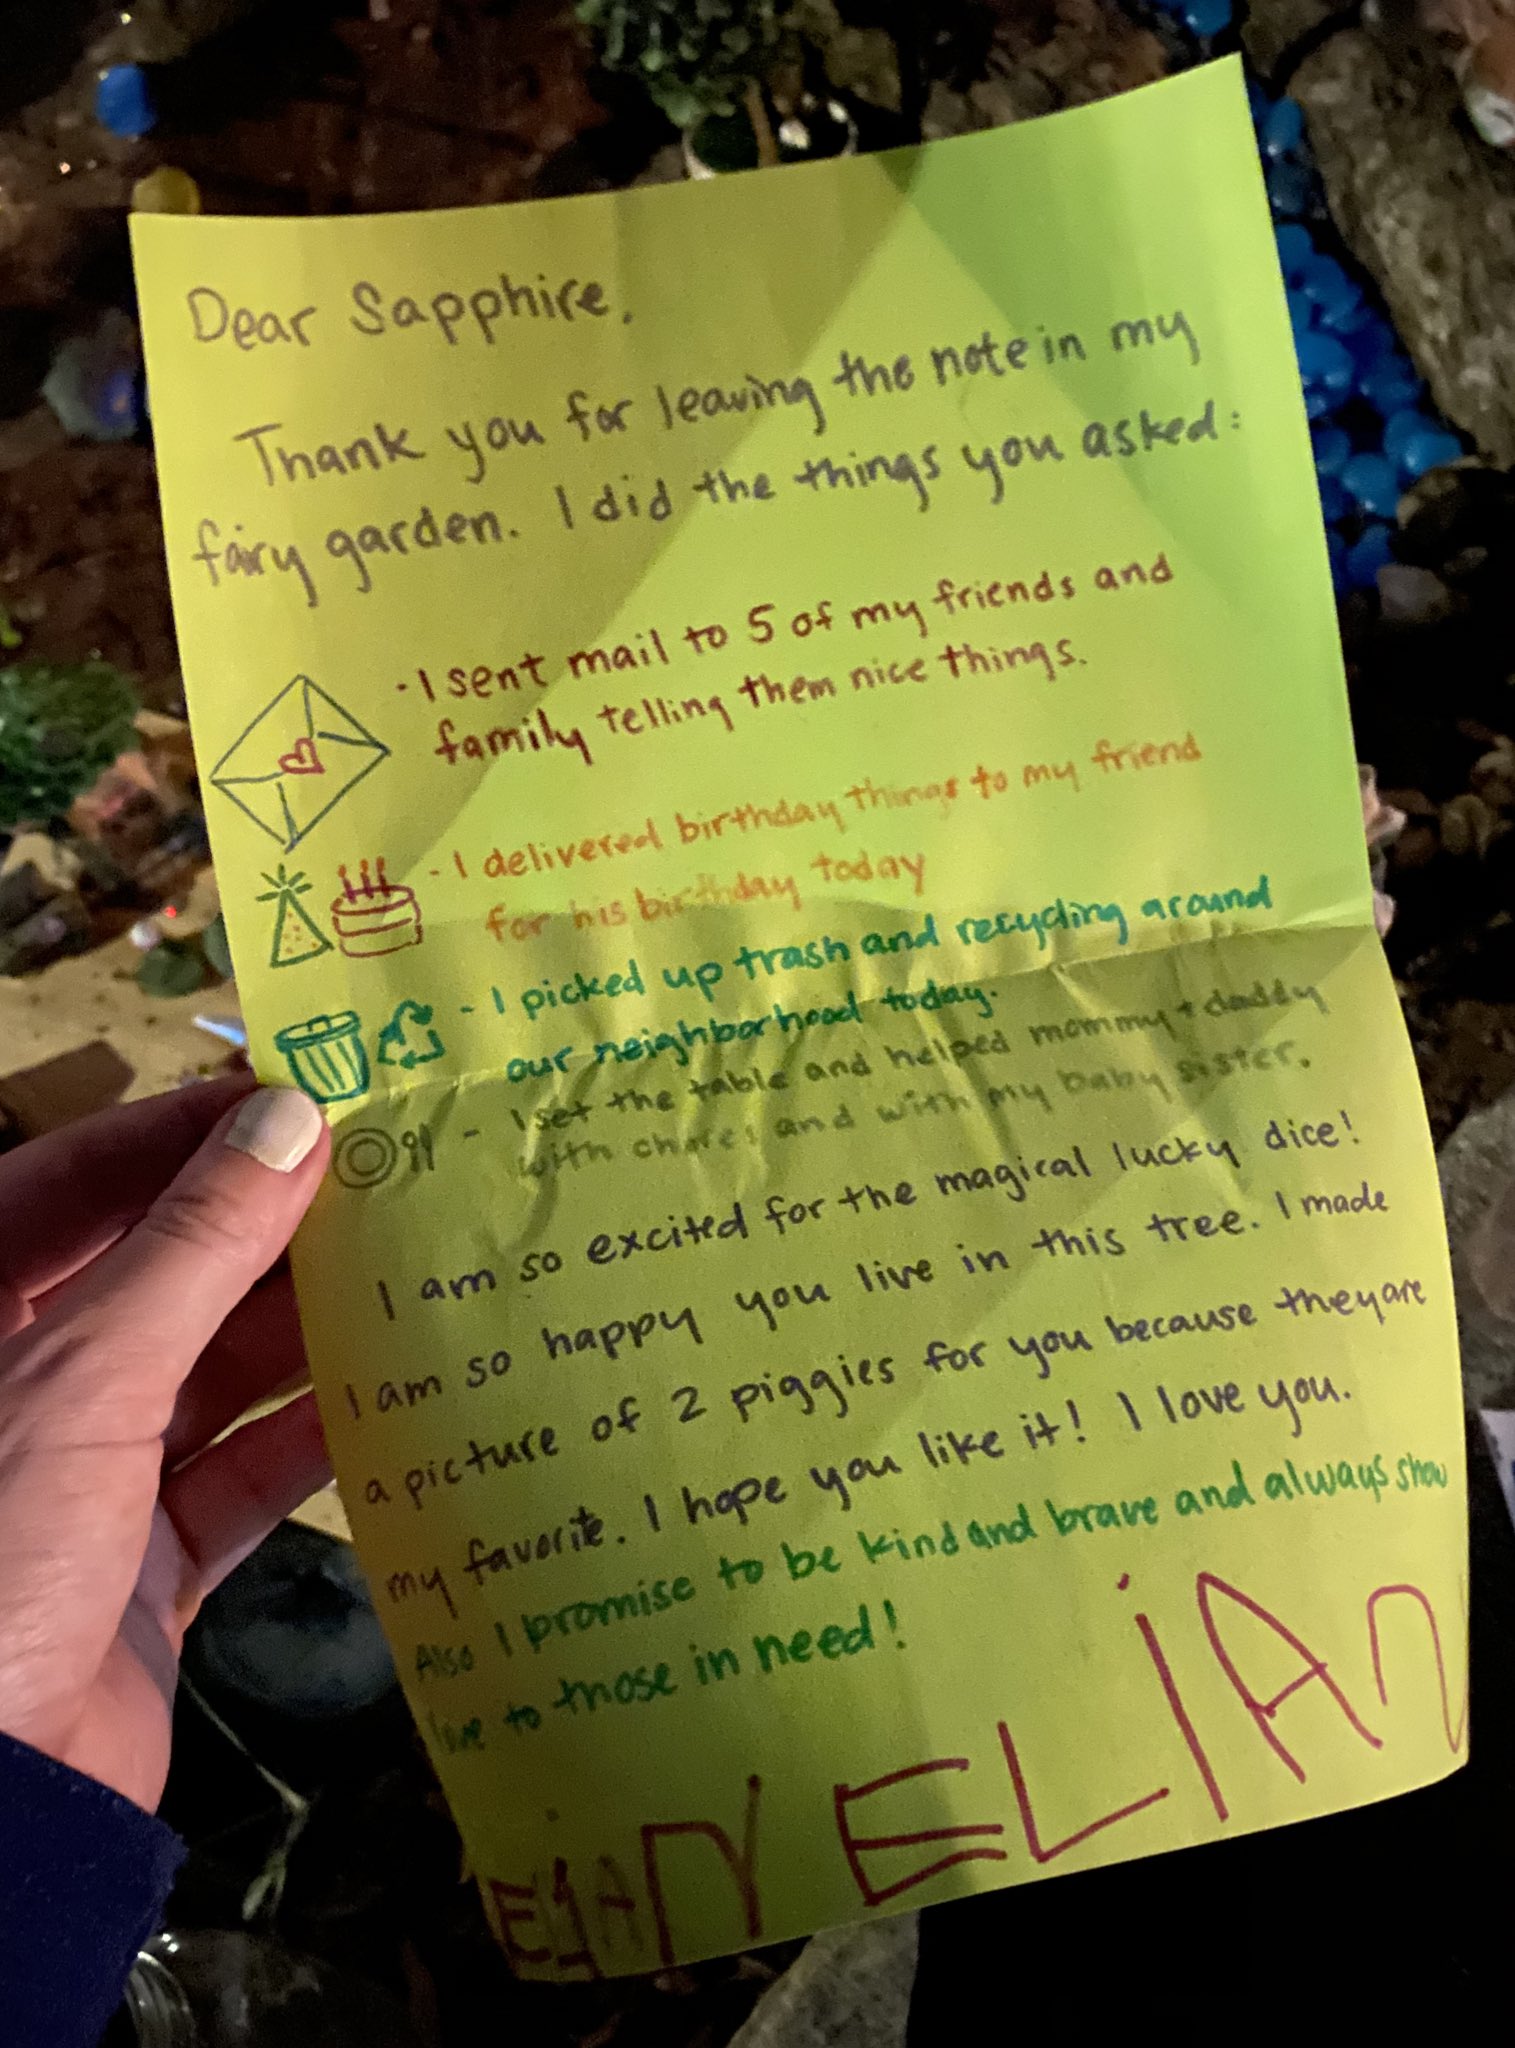 Dear Sapphire,
Thank you for leaving the note in my
fairy garden. I did the things you asked:
- I sent mail to 5 of my friends and
family telling them nice things.
- I delivered birthday things to my friend
for his birthday today
- I picked up trash and recycling around
our neighborhood today.
- I set the table and helped mommy + daddy
with chores and with my baby sister.
I am so excited for the magical lucky dice!
I am so happy you live in this tree. I made
a picture of 2 piggies for you because they are
my favorite. I hope you like it! I love you.
Also I promise to be kind and brave and always show
love to those in need!
ELIAN